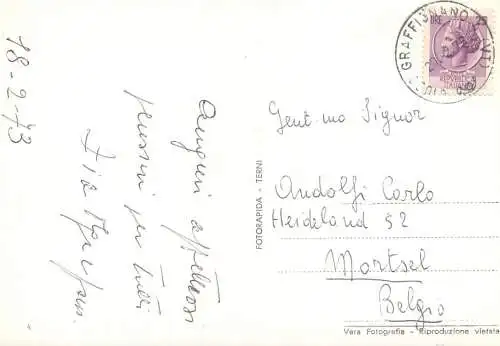 18-2-73
Auguri affettuosi
per tutti
Zia
GRAFFIGNANO (VT)
LIRE 25
REPUBBLICA
ITALIANA
Gent.mo Signor
Andolfi Carlo
Heideland 52
Mortsel
Belgio
FOTORAPIDA - TERNI
Vera Fotografia - Riproduzione vietata